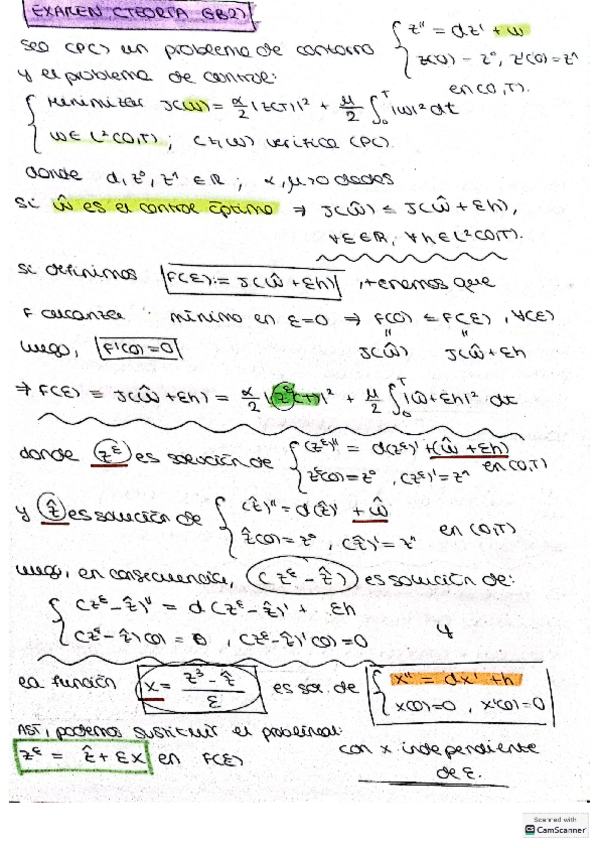 EXAMEN (TEORÍA GB2)
Sea (PC) un problema de contorno { z'' = dz' + w
y el problema de control: z(0) = z⁰, z'(0) = z¹
en (0,T).
{ Minimizar J(w) = α/2 |z(T)|² + μ/2 ∫₀ᵀ |w|² dt
w ∈ L²(0,T); (z,w) verifica (PC)
donde d, z⁰, z¹ ∈ ℝ; α, μ > 0 dados
Si ŵ es el control óptimo ⇒ J(ŵ) ≤ J(ŵ + εh),
∀ε ∈ ℝ, ∀h ∈ L²(0,T).
Si definimos F(ε) := J(ŵ + εh), tenemos que
F alcanza mínimo en ε=0 ⇒ F(0) ≤ F(ε), ∀(ε)
luego, F'(0)=0 J(ŵ) J(ŵ+εh
⇒ F(ε) = J(ŵ+εh) = α/2 |z^ε(T)|² + μ/2 ∫₀ᵀ |ŵ+εh|² dt
donde z^ε es solución de { (z^ε)'' = d(z^ε)' + (ŵ + εh)
z^ε(0) = z⁰, (z^ε)' = z¹ en (0,T)
y ẑ es solución de { (ẑ)'' = d(ẑ)' + ŵ
ẑ(0) = z⁰, (ẑ)' = z¹ en (0,T)
luego, en consecuencia, (z^ε - ẑ) es solución de:
{ (z^ε - ẑ)'' = d(z^ε - ẑ)' + εh
(z^ε - ẑ)(0) = 0, (z^ε - ẑ)'(0) = 0 y
la función x = (z^ε - ẑ)/ε es sol. de { x'' = dx' + h
x(0)=0, x'(0)=0
Así, podemos sustituir el problema:
z^ε = ẑ + εx en F(ε) con x independiente
de ε.
Scanned with
CamScanner